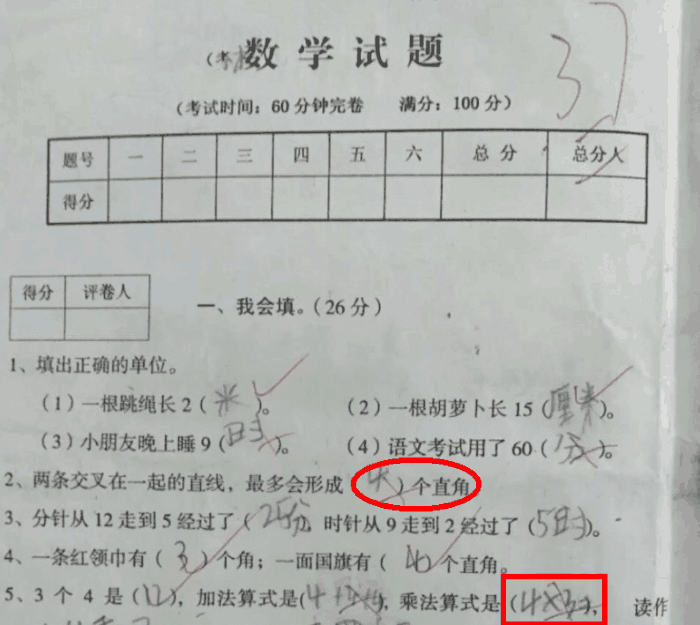 数学试题
(考试时间：60分钟完卷 满分：100分)
题号 一 二 三 四 五 六 总分 总分人
得分
37
得分 评卷人
一、我会填。(26分)
1、填出正确的单位。
(1)一根跳绳长2(米)。 (2)一根胡萝卜长15(厘米)。
(3)小朋友晚上睡9(时)。 (4)语文考试用了60(分)。
2、两条交叉在一起的直线，最多会形成(4)个直角
3、分针从12走到5经过了(25分)，时针从9走到2经过了(5时)。
4、一条红领巾有(3)个角；一面国旗有(4)个直角。
5、3个4是(12)，加法算式是(4+)，乘法算式是(4×3)，读作